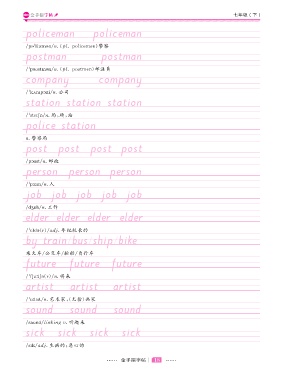 全丰福字帖 七年级(下)
policeman policeman
/pəˈliːsmən/n. (pl. policemen)警察
postman postman
/ˈpəʊstmən/n. (pl. postmen)邮递员
company company
/ˈkʌmpəni/n. 公司
station station station
/ˈsteɪʃn/n. 局;所;站
police station
n. 警察局
post post post post
/pəʊst/n. 邮政
person person person
/ˈpɜːsn/n. 人
job job job job job
/dʒɒb/n. 工作
elder elder elder elder
/ˈeldə(r)/adj. 年纪较长的
by train bus ship bike
乘火车/公交车/轮船/自行车
future future future
/ˈfjuːtʃə(r)/n. 将来
artist artist artist
/ˈɑːtɪst/n. 艺术家;(尤指)画家
sound sound sound
/saʊnd/linking v. 听起来
sick sick sick sick
/sɪk/adj. 生病的;恶心的